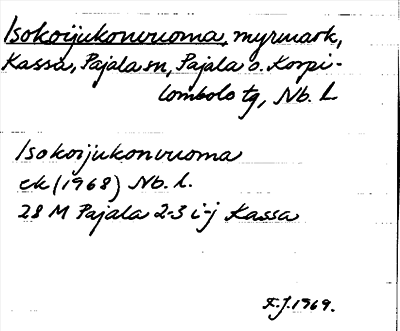 Isokoijukonvuoma, myrmark,
Kassa, Pajala sn, Pajala o. Korpi-
lombolo tg, Nb. l.
Isokoijukonvuoma
ek (1968) Nb. l.
28 M Pajala 2-3 i-j Kassa
F.J. 1969.